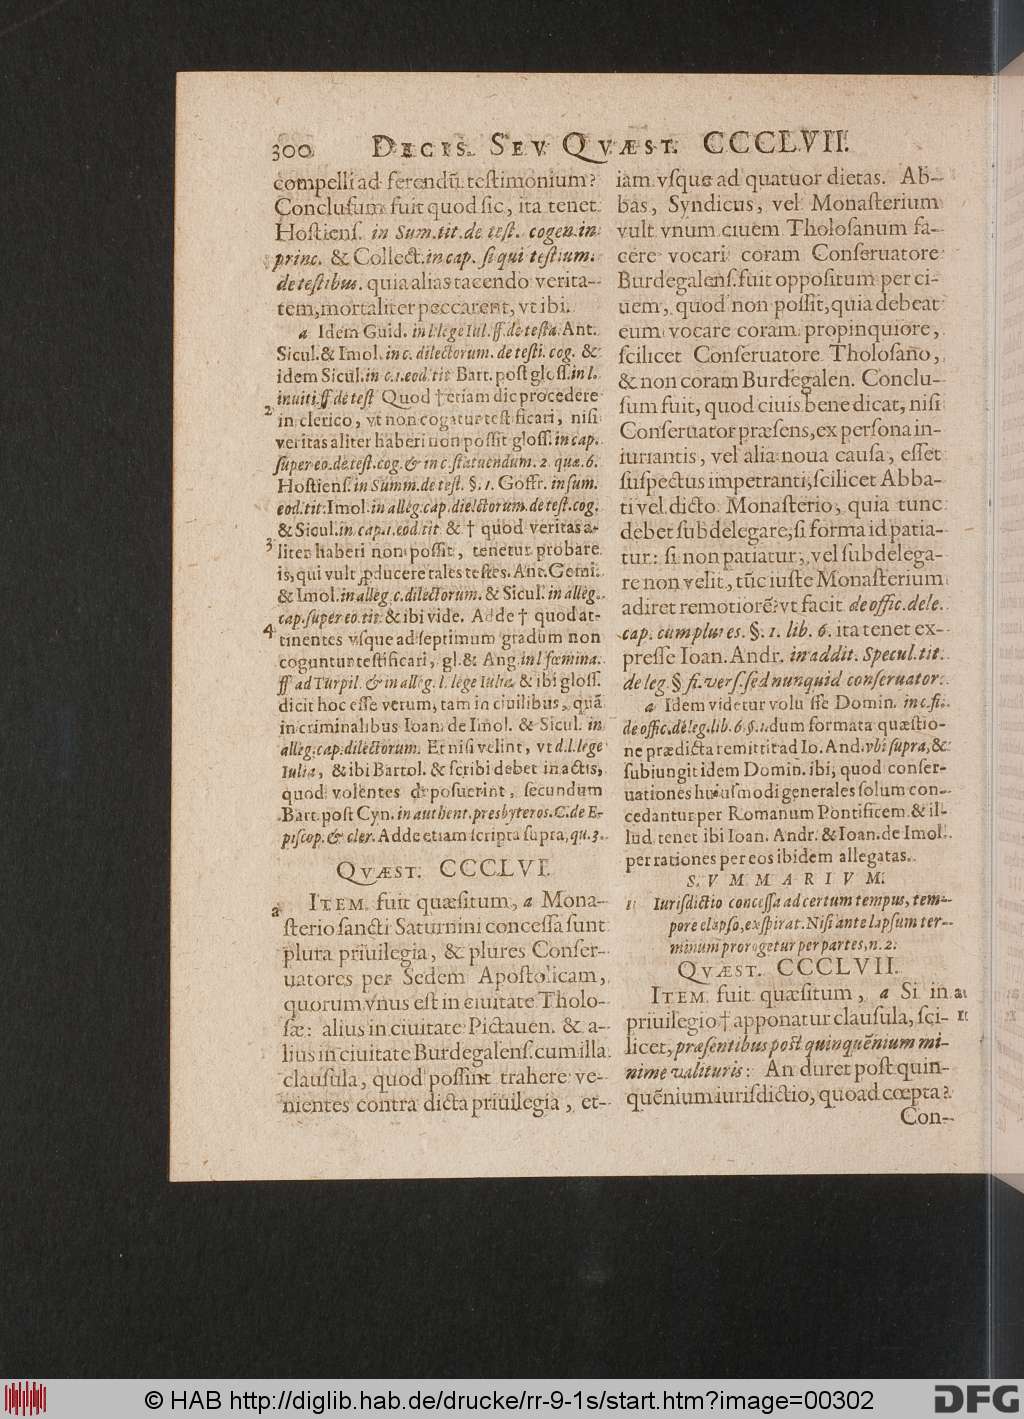 300 DECIS. SEV QVÆST. CCCLVII.
compelli ad ferendũ testimonium?
Conclusum fuit quod sic, ita tenet
Hostiens. in Sum. tit. de test. cogen. in
princ. & Collect. in cap. si qui testium.
de testibus. quia alias tacendo verita-
tem, mortaliter peccarent, vt ibi.
a Idem Guid. in l. lege Iul. ff. de testa. Ant.
Sicul. & Imol. in c. dilectorum. de testi. cog. &
idem Sicul. in c. 1. eod. tit Bart. post gloss. in l.
inuiti. ff de test Quod † etiam dic procedere
2 in clerico, vt non cogatur testificari, nisi
veritas aliter haberi non possit gloss. in cap.
super eo. de. test. cog. & in c. statuendum. 2. quæ. 6.
Hostiens. in Summ. de test. §. 1. Goffr. in sum.
eod. tit. Imol. in alleg. cap. dielectorum. de test. cog.
& Sicul. in cap. 1. eod. tit & † quod veritas a-
3 liter haberi non possit, tenetur probare
is, qui vult ꝓducere tales testes. Ant. Gemi.
& Imol. in alleg. c. dilectorum. & Sicul. in alleg.
cap. super eo. tit. & ibi vide. Adde † quod at-
4 tinentes vsque ad septimum gradum non
coguntur testificari, gl. & Ang. in l fœmina.
ff ad Turpil. & in alleg. l. lege Iulia. & ibi gloss.
dicit hoc esse verum, tam in ciuilibus, quã
in criminalibus Ioan. de Imol. & Sicul. in
alleg. cap. dilectorum. Et nisi velint, vt d. l. lege
Iulia, & ibi Bartol. & scribi debet in actis,
quod volentes deposuerint, secundum
Bart. post Cyn. in authent. presbyteros. C. de E-
piscop. & cler. Adde etiam scripta supra, qu. 3.
QVÆST. CCCLVI.
a ITEM fuit quæsitum, a Mona-
sterio sancti Saturnini concessa sunt
plura priuilegia, & plures Conser-
uatores per Sedem Apostolicam,
quorum vnus est in ciuitate Tholo-
sæ: alius in ciuitate Pictauen. & a-
lius in ciuitate Burdegalens. cum illa
clausula, quod possint trahere ve-
nientes contra dicta priuilegia, et-
iam vsque ad quatuor dietas. Ab-
bas, Syndicus, vel Monasterium
vult vnum ciuem Tholosanum fa-
cere vocari coram Conseruatore
Burdegalens. fuit oppositum per ci-
uem, quod non possit, quia debeat
eum vocare coram propinquiore,
scilicet Conseruatore Tholosano,
& non coram Burdegalen. Conclu-
sum fuit, quod ciuis bene dicat, nisi
Conseruator præsens, ex persona in-
iuriantis, vel alia noua causa, esset
suspectus impetranti, scilicet Abba-
ti vel dicto Monasterio, quia tunc
debet subdelegare, si forma id patia-
tur: si non patiatur, vel subdelega-
re non velit, tũc iuste Monasterium
adiret remotiorẽ? vt facit de offic. dele.
cap. cum plures. §. 1. lib. 6. ita tenet ex-
presse Ioan. Andr. in addit. Specul. tit.
de leg. § fi. vers. sed nunquid conseruator.
a Idem videtur volusse Domin. in c. fi.
de offic. deleg. lib. 6. §. 1. dum formata quæstio-
ne prædicta remittit ad Io. And. vbi supra, &
subiungit idem Domin. ibi, quod conser-
uationes huiusmodi generales solum con-
cedantur per Romanum Pontificem & il-
lud tenet ibi Ioan. Andr. & Ioan. de Imol.
per rationes per eos ibidem allegatas.
SVMMARIVM.
1 Iurisdictio concessa ad certum tempus, tem-
pore elapso, exspirat. Nisi ante lapsum ter-
minum prorogetur per partes, n. 2.
QVÆST. CCCLVII.
ITEM fuit quæsitum, a Si in a
priuilegio † apponatur clausula, sci- 1
licet, præsentibus post quinquẽnium mi-
nime valituris: An duret post quin-
quẽnium iurisdictio, quoad cœpta?
Con-
© HAB http://diglib.hab.de/drucke/rr-9-1s/start.htm?image=00302
DFG